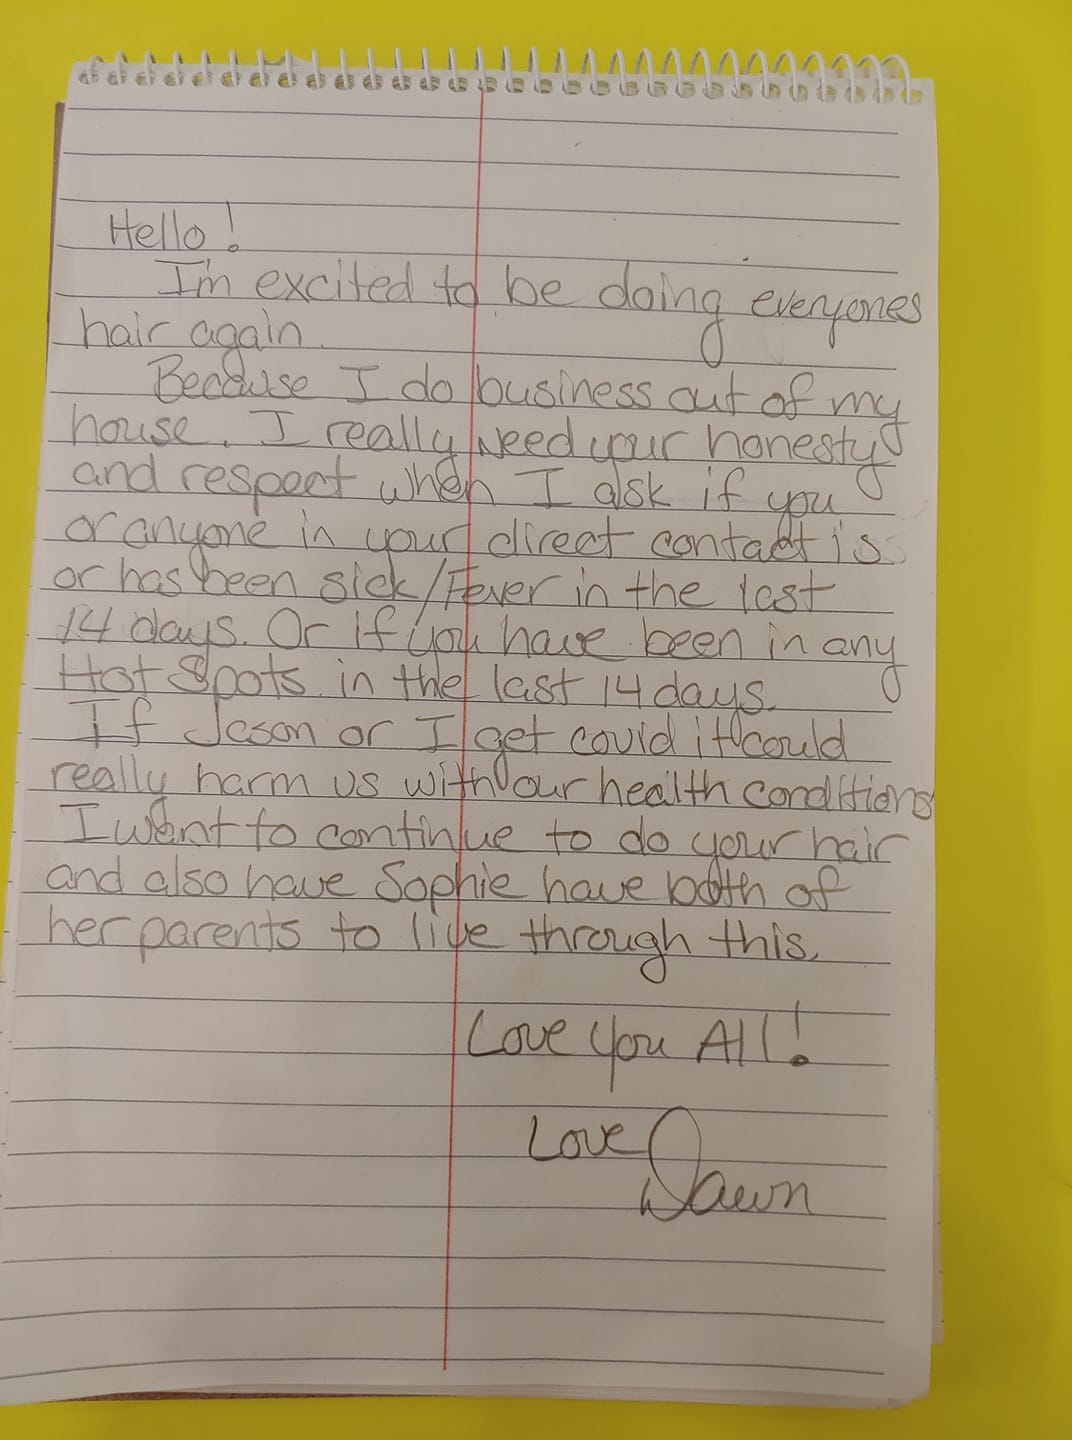 Hello!
I'm excited to be doing everyones
hair again.
Because I do business out of my
house. I really need your honesty
and respect when I ask if you
or anyone in your direct contact is
or has been sick/Fever in the last
14 days. Or if you have been in any
Hot Spots in the last 14 days.
If Jason or I get covid it could
really harm us with our health conditions
I want to continue to do your hair
and also have Sophie have both of
her parents to live through this.
Love You All!
Love
Dawn